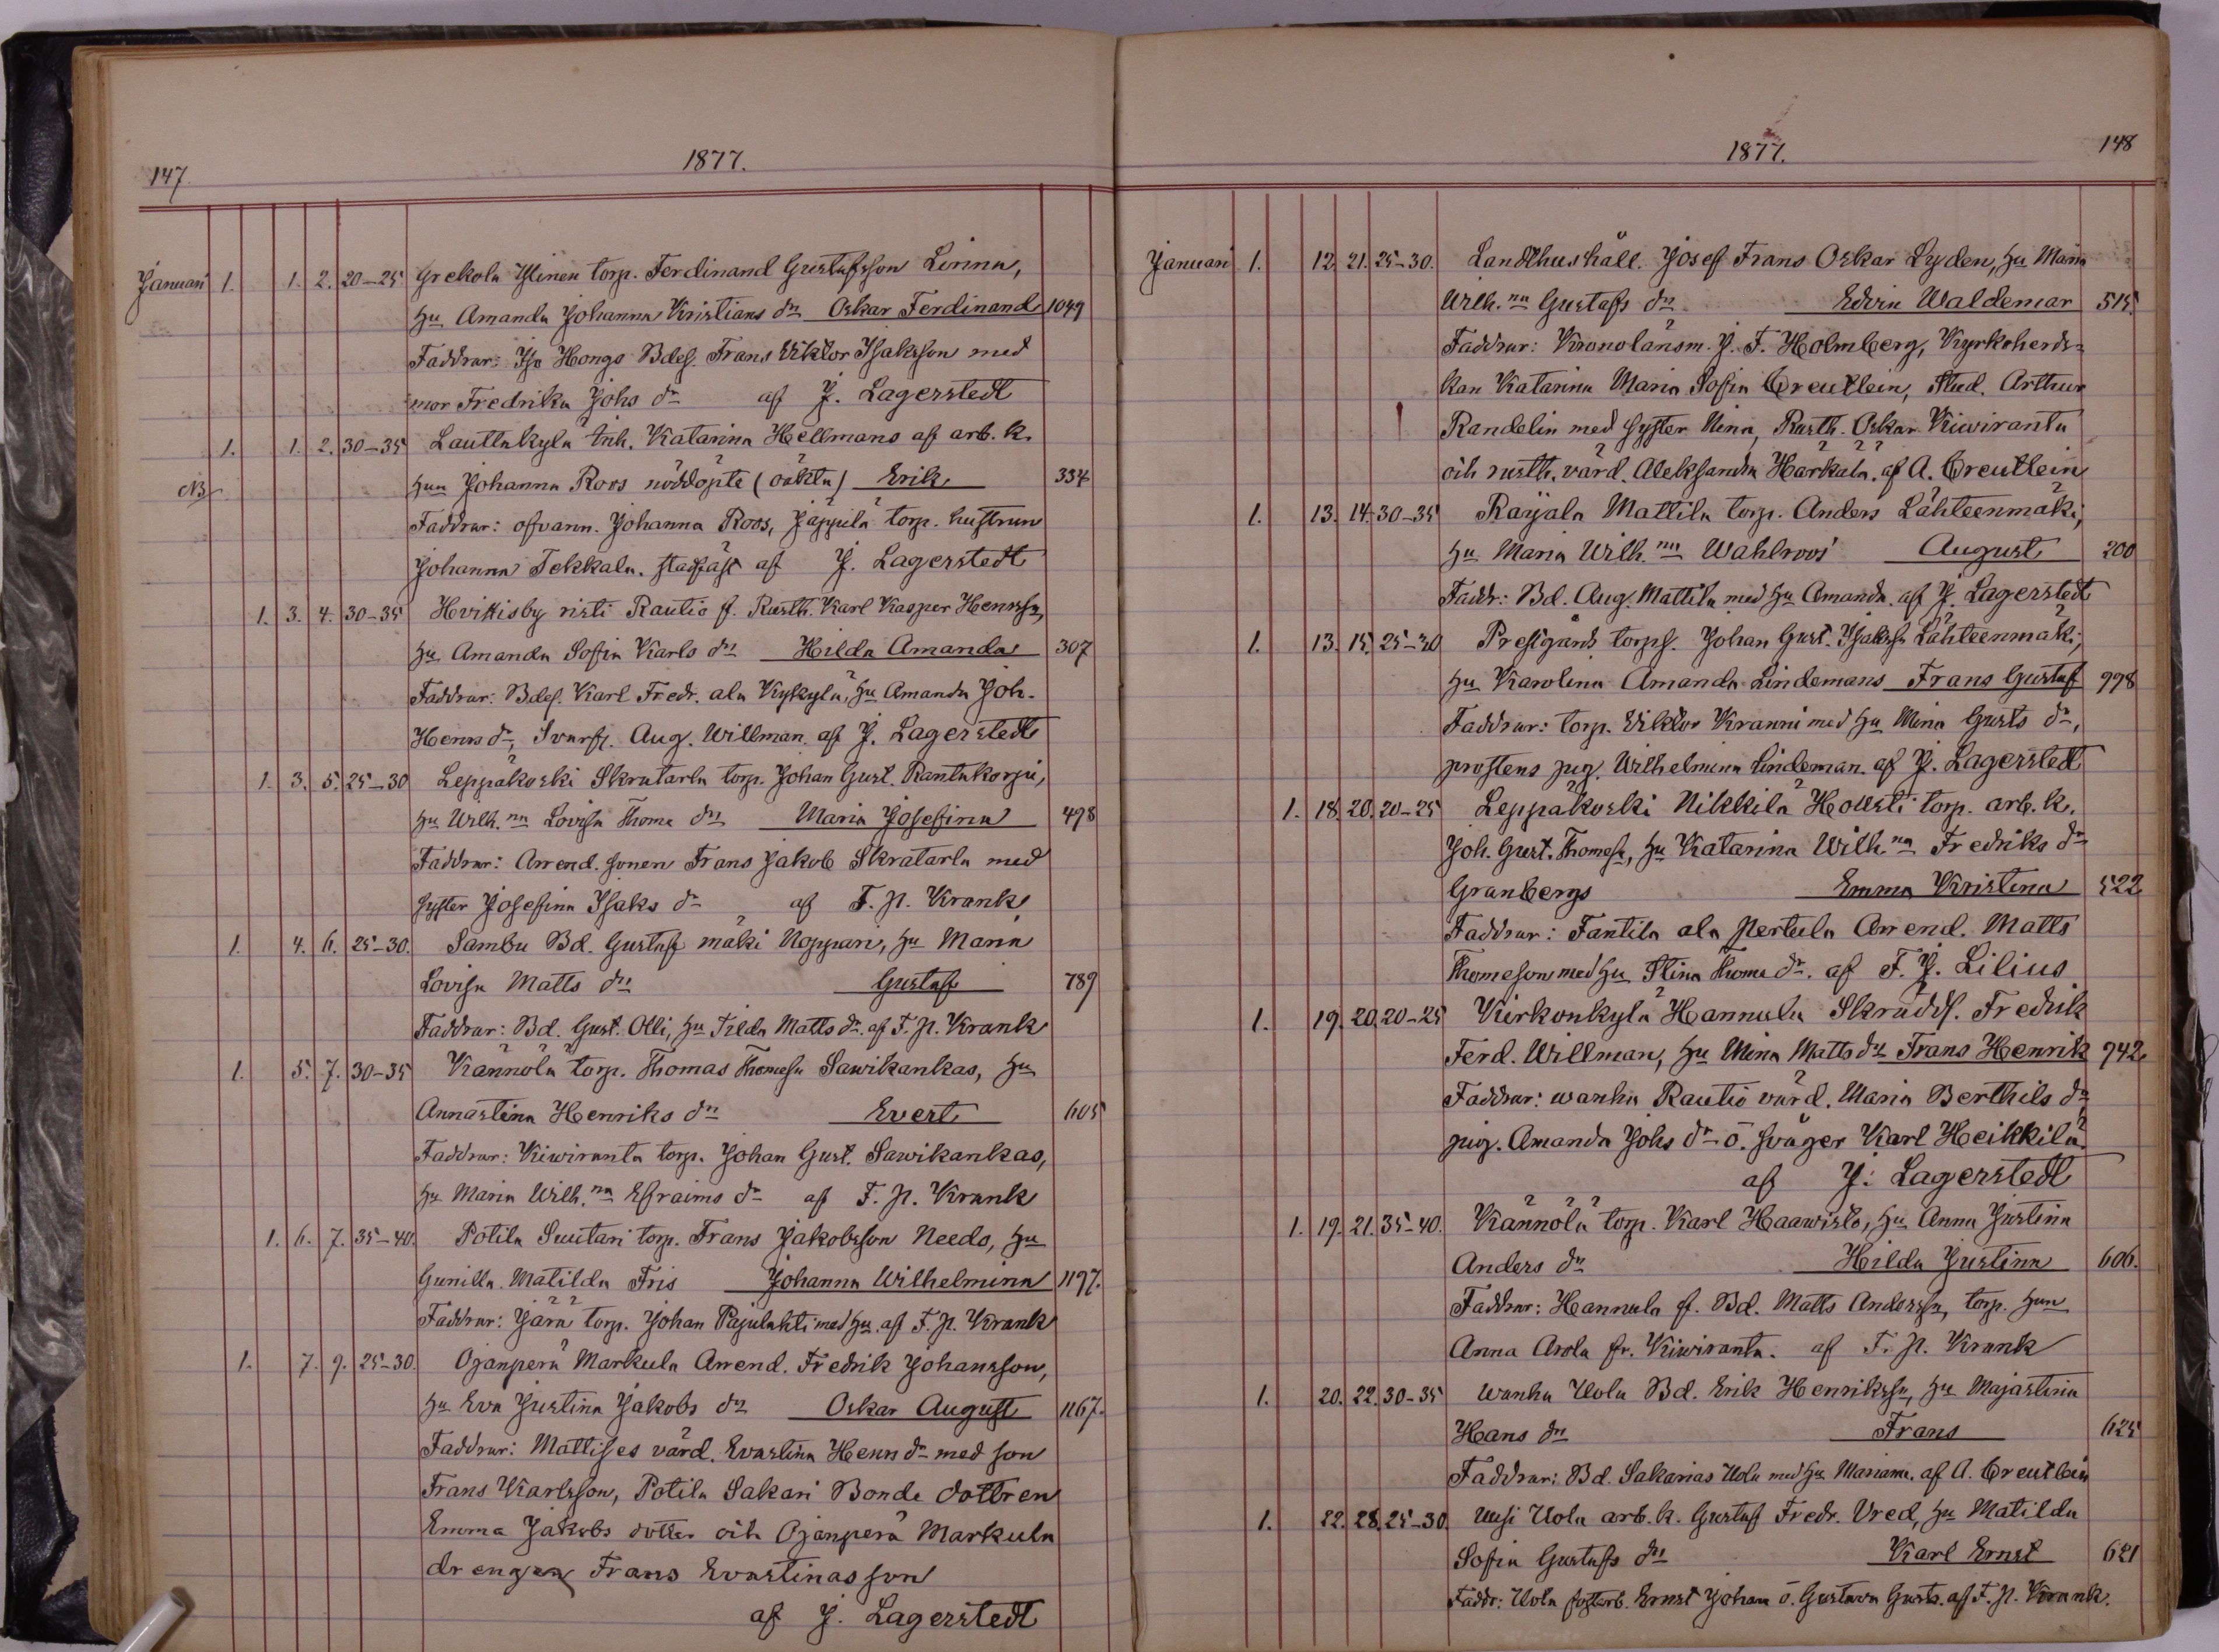 147
1877.
Januari 1. 1. 2. 20-25 Grekola Ylinen torp. Ferdinand Gustafsson Linna,
Hu Amanda Johanna Kristians dr Oskar Ferdinand 1049
Faddrar: Iso Hongo Bdes. Frans Viktor Isaksson med
mor Fredrika Johs dr af J. Lagerstedt
1. 1. 2. 30-35 Lauttakylä inh. Katarina Hellmans af arb. k.
NB hun Johanna Roos nöddöpte (oäkta) Erik 334
Faddrar: ofvann. Johanna Roos, Jäppilä torp. hustrun
Johanna Tekkala. stadfäst af J. Lagerstedt
1. 3. 4. 30-35 Hvittisby risti Rautio f. Rusth. Karl Kasper Henrss,
Hu Amanda Sofia Karls dr Hilda Amanda 307
Faddrar: Bdes. Karl Fredr. ala Kyskylä, Hu Amanda Joh.
Henrs dr, Svarf. Aug. Willman. af J. Lagerstedt
1. 3. 5. 25-30 Leppäkoski Skratarla torp. Johan Gust. Rantakorpi,
Hu Wilh.na Lovisa Thoma dr Maria Josefina 498
Faddrar: Arrend. sonen Frans Jakob Skratarla med
syster Josefina Isaks dr af F. N. Krank
1. 4. 6. 25-30. Sambu Bd. Gustaf mäki Noppari, Hu Maria
Lovisa Matts dr Gustaf 789
Faddrar: Bd. Gust. Olli, Hu Tilda Matts dr. af F. N. Krank
1. 5. 7. 30-35 Kännölä torp. Thomas Thomess Sawikankas, Hu
Annastina Henriks dr Evert 605
Faddrar: Kiwiranta torp. Johan Gust. Sawikankas,
Hu Maria Wilh.na Efraims dr af F. N. Krank
1. 6. 7. 35-40. Potila Suutari torp. Frans Jakobsson Needo, Hu
Gunilla Matilda Fris Johanna Wilhelmina 1197.
Faddrar: Järä torp. Johan Pajulahti med Hu. af F. N. Krank
1. 7. 9. 25-30. Ojanperä Markula Arrend. Fredrik Johansson,
Hu Eva Justina Jakobs dr Oskar August 1167.
Faddrar: Mattises värd. Evastina Henrs dr med son
Frans Karlsson, Potila Sakari Bonde dottren
Emma Jakobs dotter och Ojanperä Markula
drengen Frans Evastinas son
af J. Lagerstedt
1877.
148
Januari 1. 12. 21. 25-30. Landthushåll. Josef Frans Oskar Lyden, Hu Maria
Wilh.na Gustafs dr Edvin Waldemar 515.
Faddrar: Kronolänsm. J. F. Holmberg, Kyrkoherds=
kan Katarina Maria Sofia Creutlein, Stud. Arthur
Randelin med syster Nina, Rusth. Oskar Kiwiranta
och rusth. värd. Aleksandra Härkälä. af A. Creutlein
1. 13. 14. 30-35 Raijala Mattila torp. Anders Lähteenmäki,
Hu Maria Wilh.na Wahlroos August 200
Faddr: Bd. Aug. Mattila med Hu Amanda. af J. Lagerstedt
1. 13. 15. 25-30 Prestgårds torps. Johan Gust. Isakss Lähteenmäki,
Hu Karolina Amanda Lindemans Frans Gustaf 998
Faddrar: torp. Viktor Kranni med Hu Mina Gusts dr,
prostens pig. Wilhelmina Lindeman. af J. Lagerstedt
1. 18. 20. 20-25 Leppäkoski Nikkilä Hollsti torp. arb. k.
Joh. Gust. Thomess, Hu Katarina Wilh.na Fredriks dr
Granbergs Emma Kristina 522
Faddrar: Fantila ala Pertula Arrend. Matts
Thomeson med Hu Stina Thoma dr. af F. J. Lilius
1. 19. 20. 20-25 Kirkonkylä Hannula Skrädd. Fredrik
Ferd. Willman, Hu Mina Matts dr Frans Henrik 742.
Faddrar: wanha Rautio värd. Maria Berthils dr
pig. Amanda Johs dr o. svåger Karl Heikkilä
af J. Lagerstedt
1. 19. 21. 35-40. Kännölä torp. Karl Haawisto, Hu Anna Justina
Anders dr Hilda Justina 606.
Faddrar: Hannula f. Bd. Matts Anderss, torp. hun
Anna Arola fr. Kiwiranta. af F. N. Krank
1. 20. 22. 30-35 Wanha Uola Bd. Erik Henrikss, Hu Majastina
Hans dr Frans 625
Faddrar: Bd. Sakarias Uola med Hu Mariana. af A. Creutlein
1. 22. 28. 25-30. Uusi Uola arb. k. Gustaf Fredr. Vred, Hu Matilda
Sofia Gustafs dr Karl Ernst 621
Faddr: Uola Ernst Johan o. Gustava Gusts. af F. N. Krank.